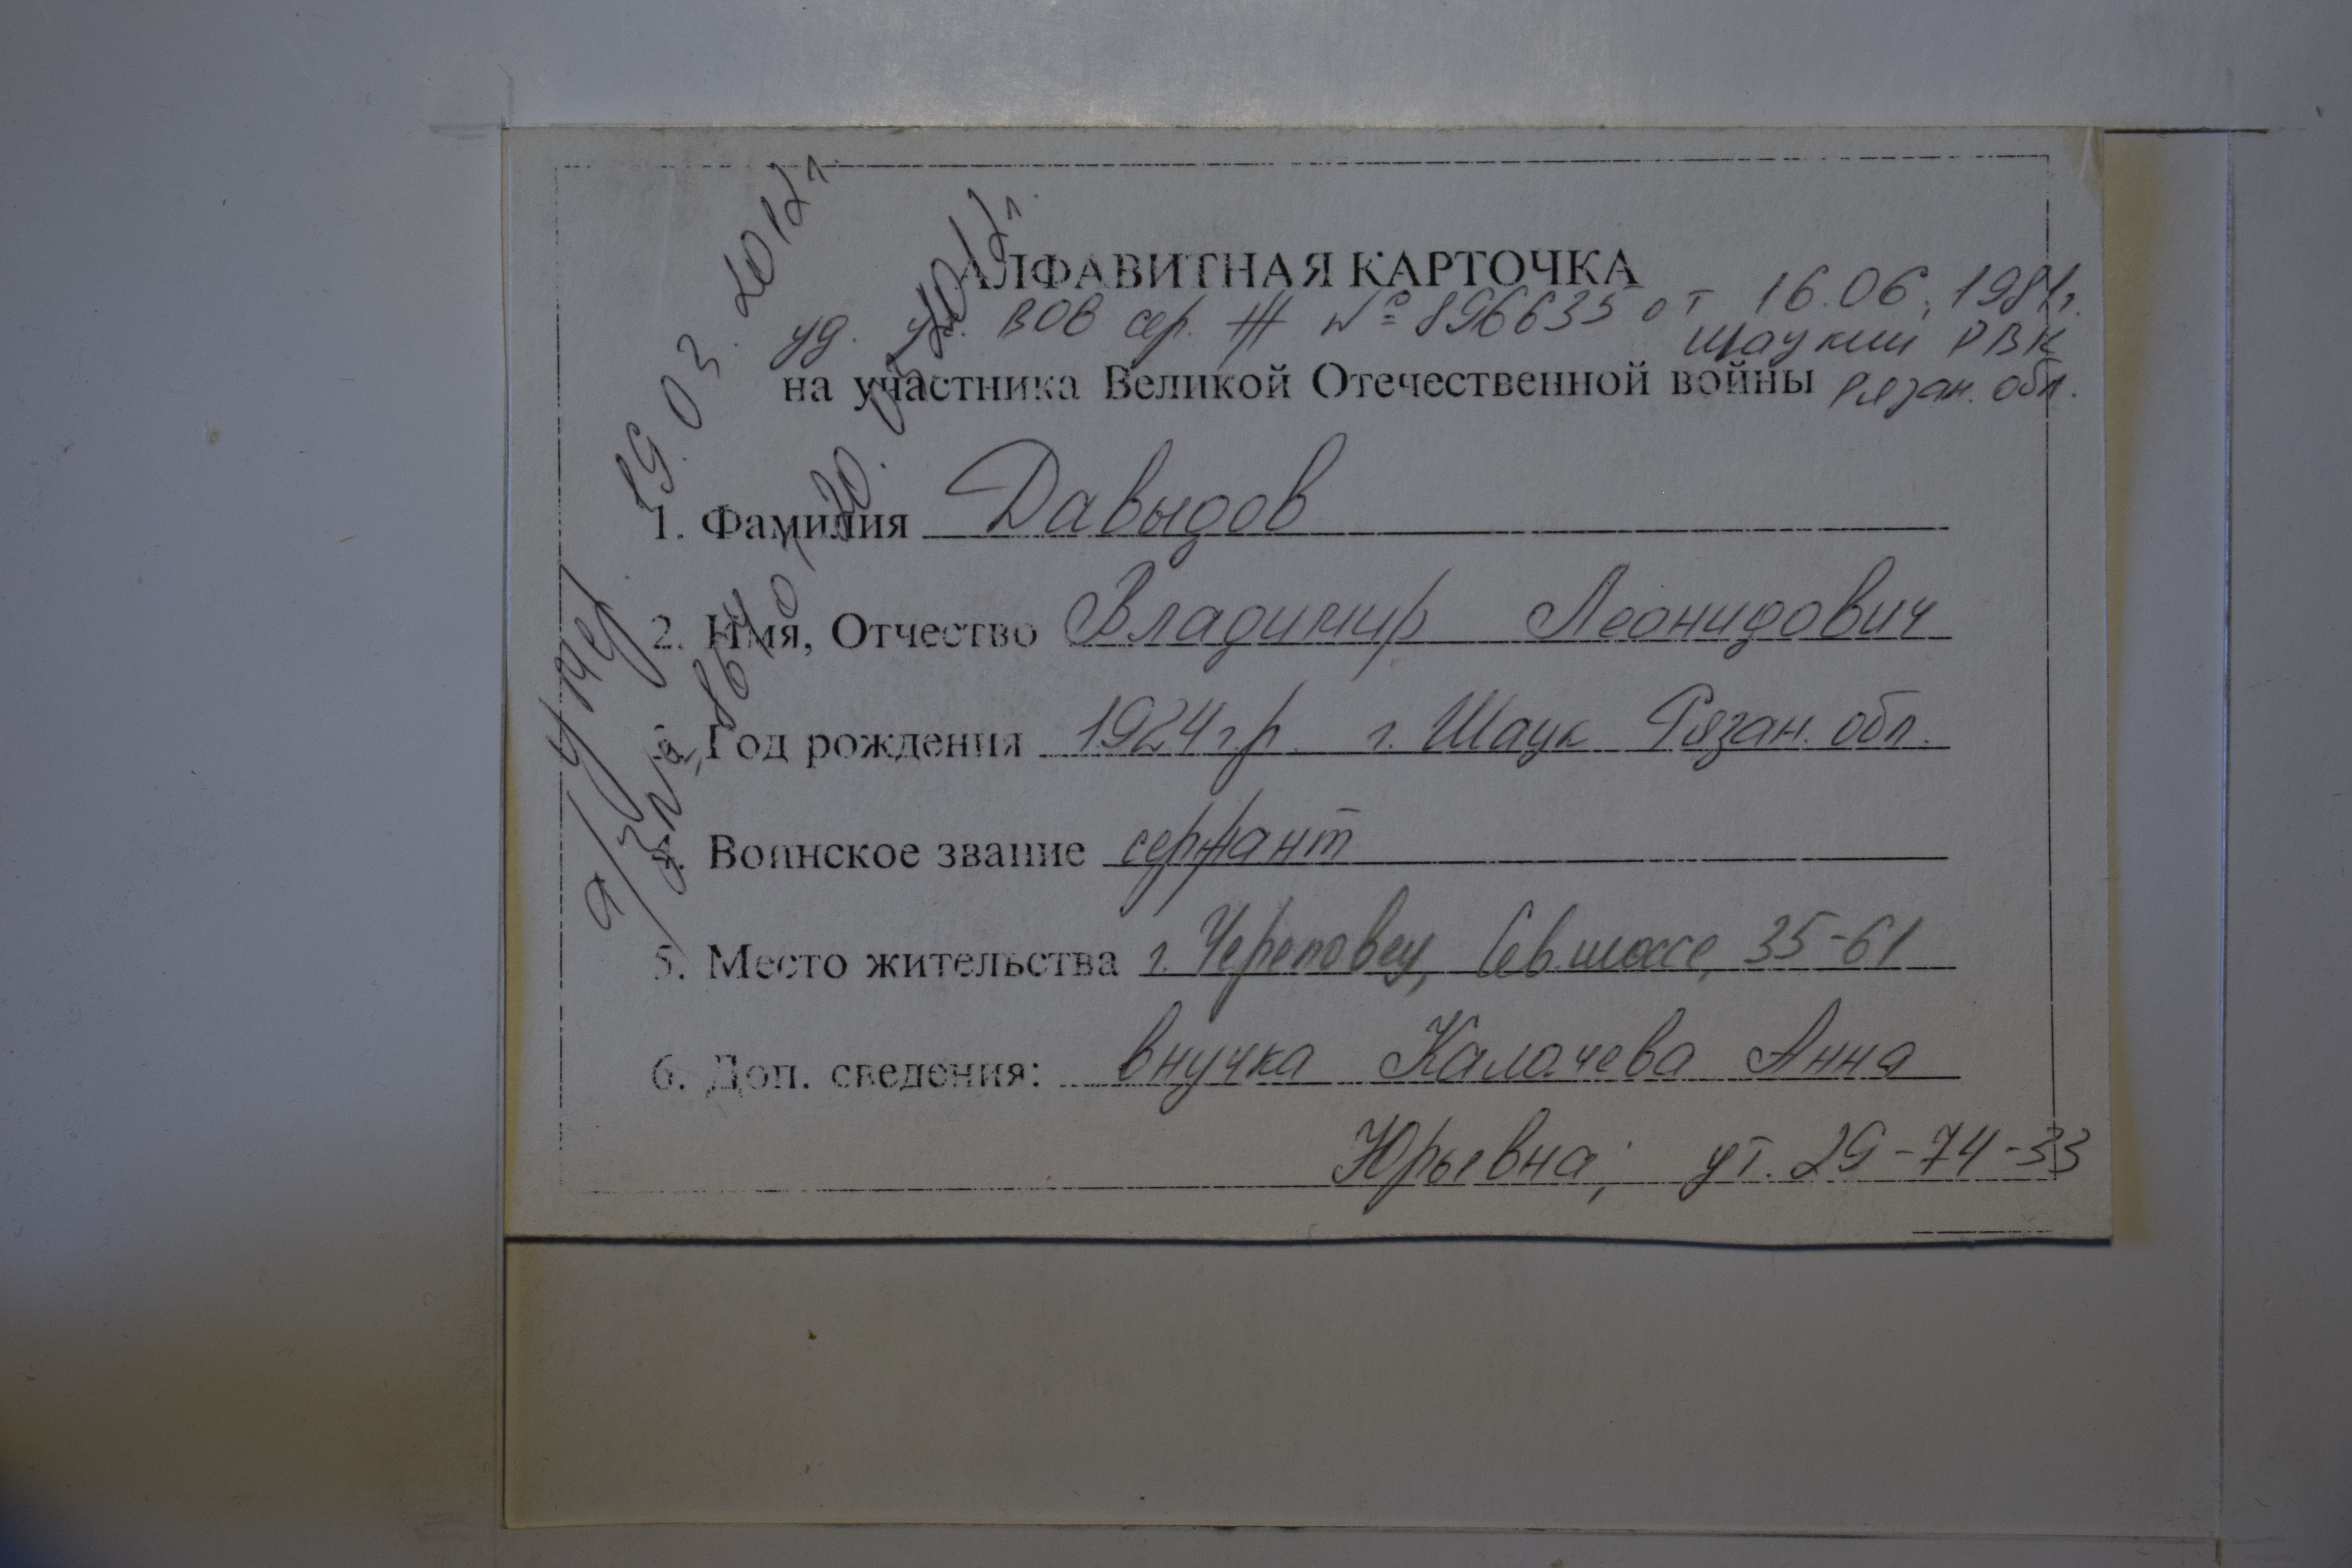 АЛФАВИТНАЯ КАРТОЧКА
уд. уч. ВОВ сер. Ж № 896635 от 16.06.1981г.
Шацкий РВК
на участника Великой Отечественной войны Рязан. обл.
1. Фамилия Давыдов
2. Имя, Отчество Владимир Леонидович
3. Год рождения 1924 г.р. г. Шацк Рязан. обл.
Воинское звание сержант
5. Место жительства г. Череповец, Сев. шоссе, 35-61
6. Доп. сведения: внучка Калачева Анна
Юрьевна; ут. 29-74-33
умер 19.03.2012г
а/з № 864 от 20.03.2012г.